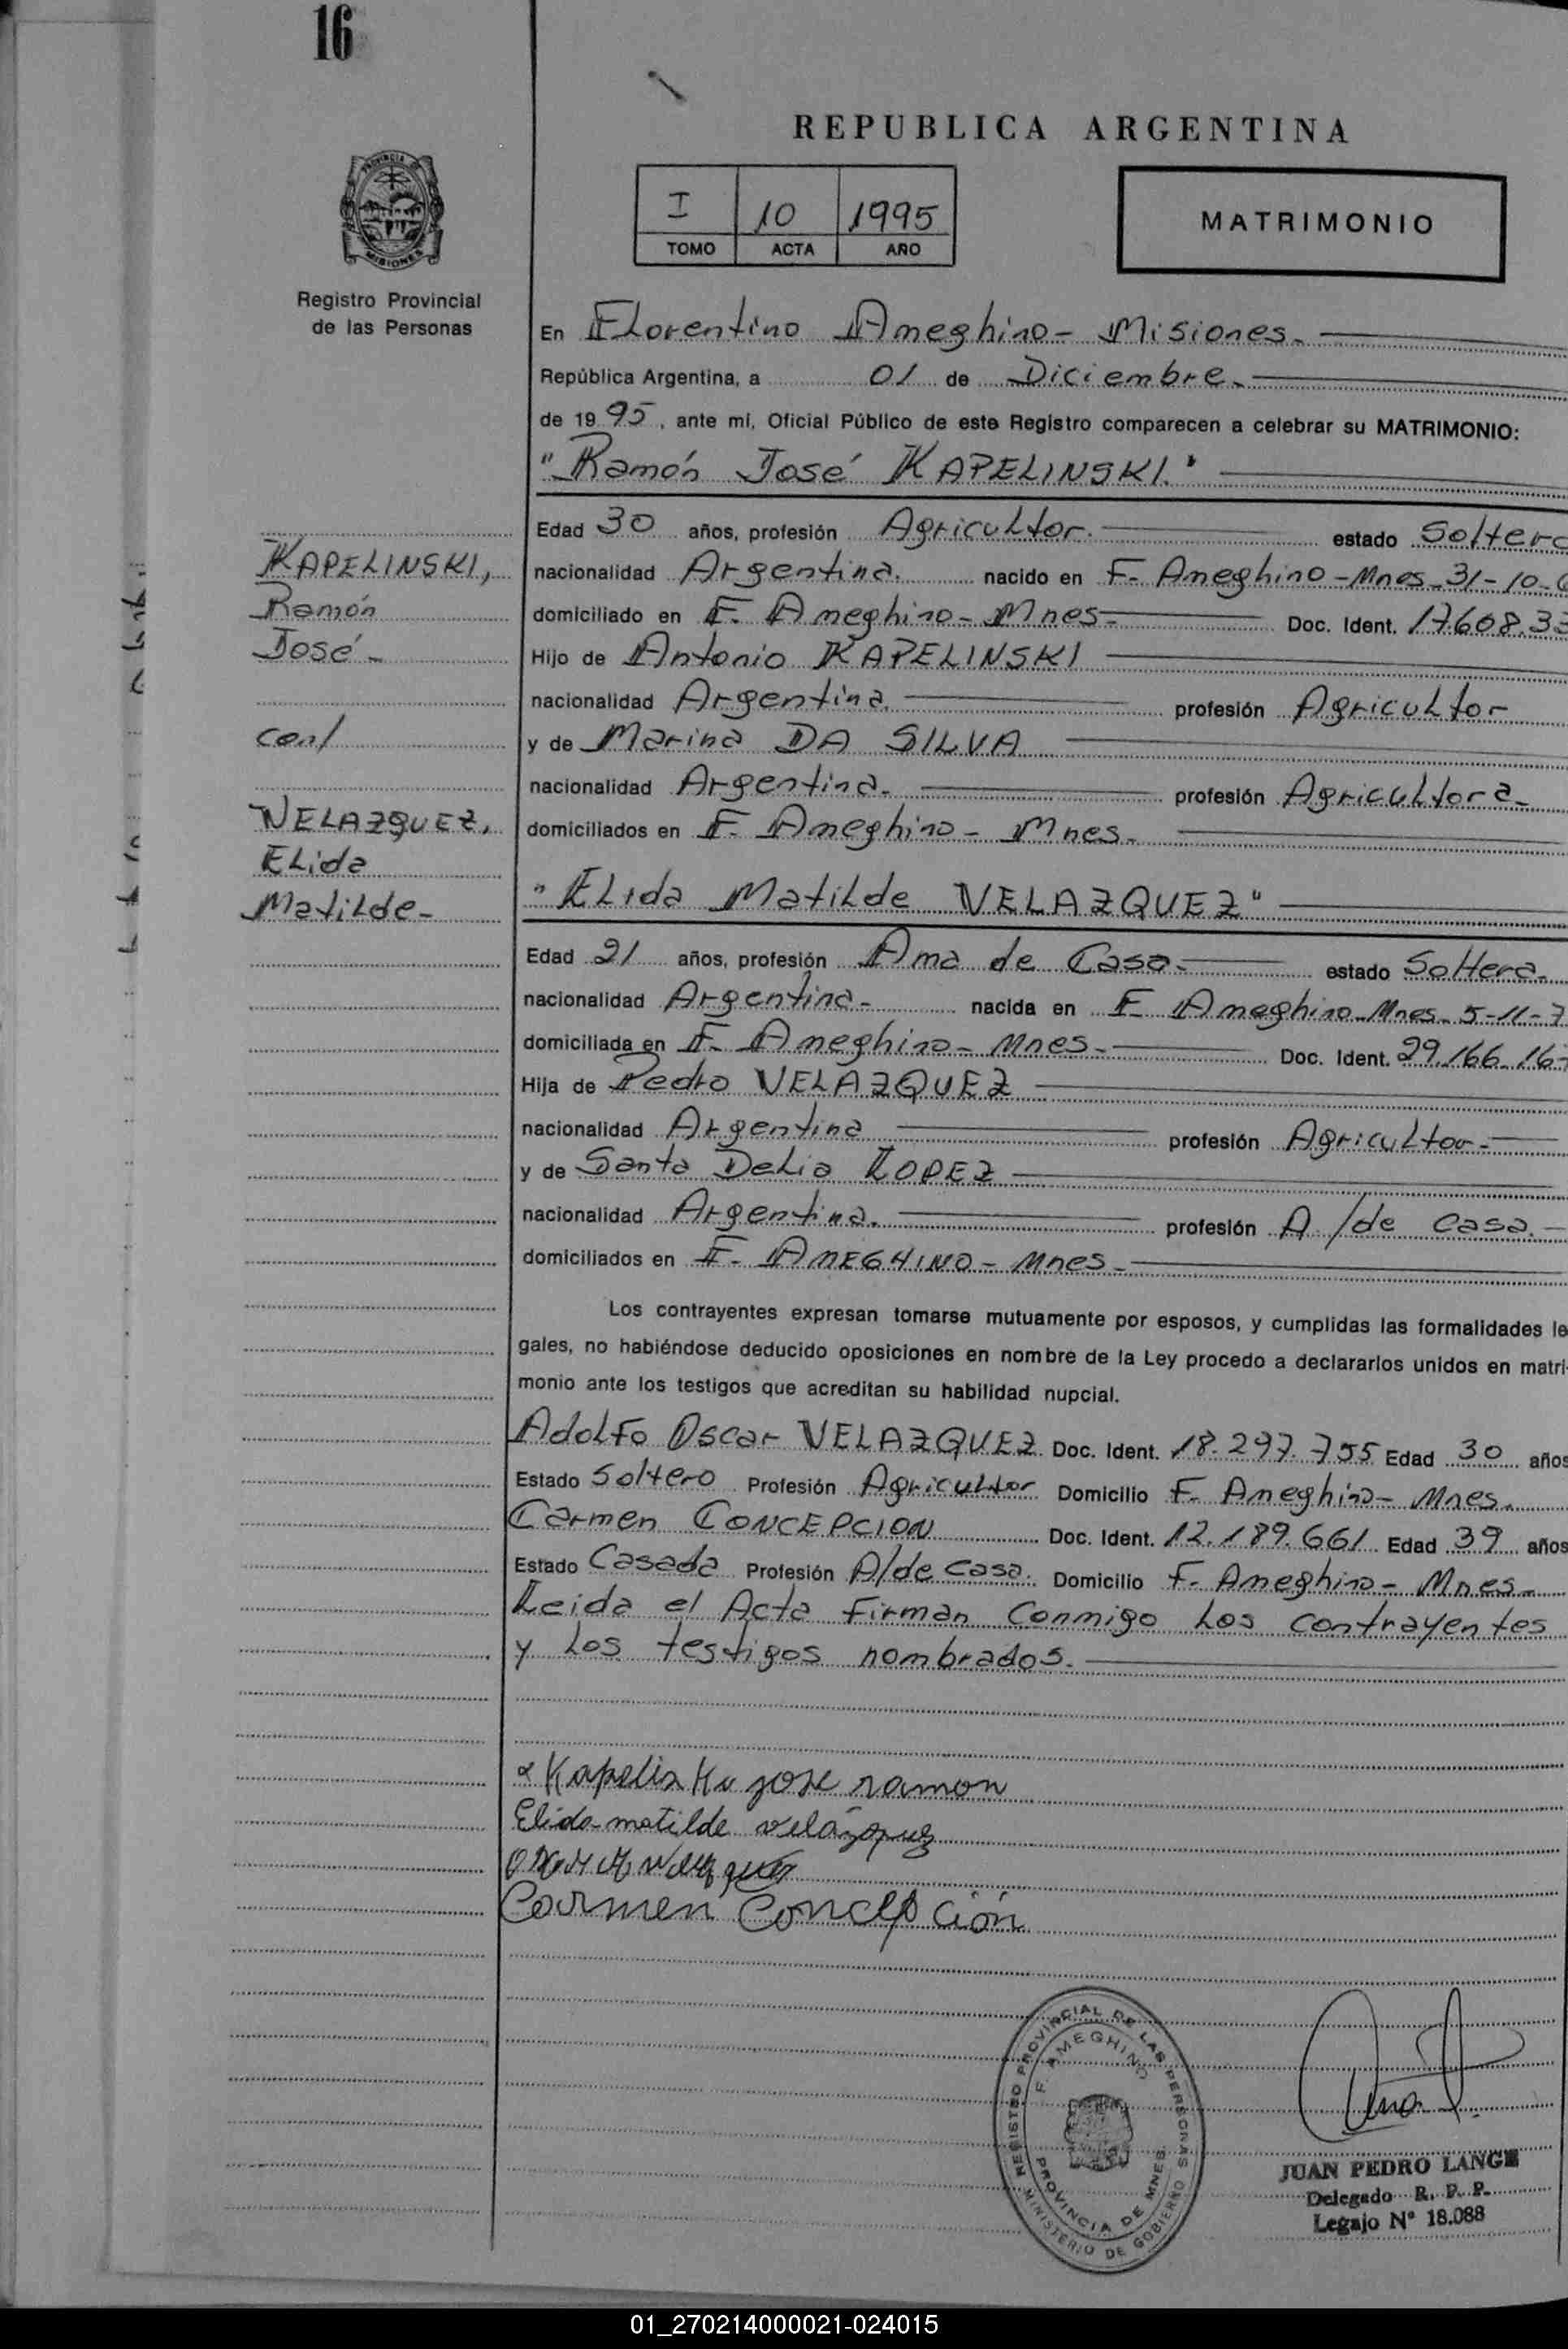 16
REPUBLICA ARGENTINA
I 10 1995
TOMO ACTA AÑO
MATRIMONIO
PROVINCIA DE
MISIONES
Registro Provincial
de las Personas
En Florentino Ameghino - Misiones.
República Argentina, a 01 de Diciembre.
de 1995, ante mi, Oficial Público de este Registro comparecen a celebrar su MATRIMONIO:
"Ramón José KAPELINSKI."
Edad 30 años, profesión Agricultor. estado Soltero
nacionalidad Argentina. nacido en F. Ameghino - Mnes - 31-10-6
domiciliado en F. Ameghino - Mnes - Doc. Ident. 17.608.33
Hijo de Antonio KAPELINSKI
nacionalidad Argentina. profesión Agricultor
y de Marina DA SILVA
nacionalidad Argentina. profesión Agricultora -
domiciliados en F. Ameghino - Mnes.
KAPELINSKI,
Ramón
José -
con/
VELAZQUEZ,
Elida
Matilde -
"Elida Matilde VELAZQUEZ"
Edad 21 años, profesión Ama de Casa. estado Soltera.
nacionalidad Argentina - nacida en F. Ameghino - Mnes - 5-11-7
domiciliada en F. Ameghino - Mnes - Doc. Ident. 29.166.167
Hija de Pedro VELAZQUEZ
nacionalidad Argentina profesión Agricultor -
y de Santa Delia LOPEZ
nacionalidad Argentina. profesión A/de casa.
domiciliados en F. AMEGHINO - Mnes -
Los contrayentes expresan tomarse mutuamente por esposos, y cumplidas las formalidades le
gales, no habiéndose deducido oposiciones en nombre de la Ley procedo a declararlos unidos en matri-
monio ante los testigos que acreditan su habilidad nupcial.
Adolfo Oscar VELAZQUEZ Doc. Ident. 18.297.755 Edad 30 años
Estado Soltero Profesión Agricultor Domicilio F. Ameghino - Mnes.
Carmen CONCEPCION Doc. Ident. 12.189.661 Edad 39 años
Estado Casada Profesión A/de casa. Domicilio F. Ameghino - Mnes -
Leida el Acta firman conmigo los contrayentes
y los testigos nombrados.
jose ramon
Elida matilde velázquez
Carmen Concepción
REGISTRO PROVINCIAL DE LAS PERSONAS
F. AMEGHINO
PROVINCIA DE MNES.
MINISTERIO DE GOBIERNO
JUAN PEDRO LANGE
Delegado R. P. P.
Legajo Nº 18.088
01_270214000021-024015